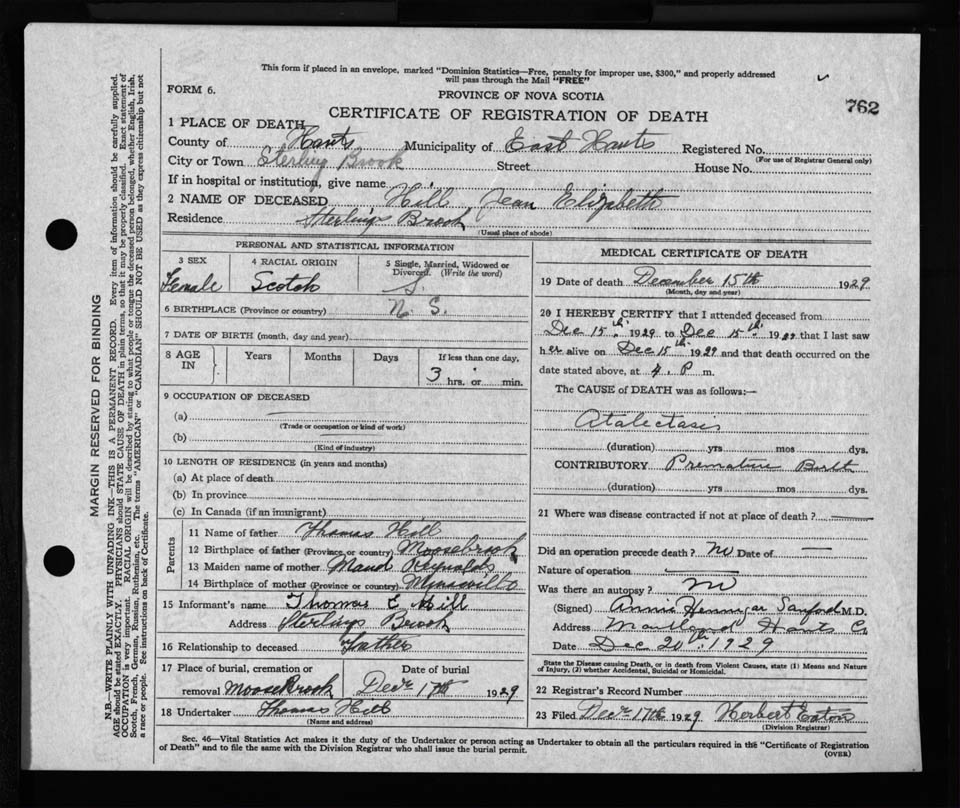 This form if placed in an envelope, marked "Dominion Statistics—Free, penalty for improper use, $300," and properly addressed
will pass through the Mail "FREE"
FORM 6.
PROVINCE OF NOVA SCOTIA
762
CERTIFICATE OF REGISTRATION OF DEATH
1 PLACE OF DEATH
County of Hants Municipality of East Hants Registered No.
(For use of Registrar General only)
City or Town Sterling Brook Street House No.
If in hospital or institution, give name
2 NAME OF DECEASED Hill Jean Elizabeth
Residence Sterlings Brook
(Usual place of abode)
PERSONAL AND STATISTICAL INFORMATION
3 SEX 4 RACIAL ORIGIN 5 Single, Married, Widowed or
Divorced. (Write the word)
Female Scotch S.
6 BIRTHPLACE (Province or country) N. S.
7 DATE OF BIRTH (month, day and year)
8 AGE IN Years Months Days If less than one day,
3 hrs. or min.
9 OCCUPATION OF DECEASED
(a)
(Trade or occupation or kind of work)
(b)
(Kind of industry)
10 LENGTH OF RESIDENCE (in years and months)
(a) At place of death
(b) In province
(c) In Canada (if an immigrant)
Parents
11 Name of father Thomas Hill
12 Birthplace of father (Province or country) Moosebrook
13 Maiden name of mother Maud Reynolds
14 Birthplace of mother (Province or country)
15 Informant's name Thomas E Hill
Address Sterlings Brook
16 Relationship to deceased Father
17 Place of burial, cremation or Date of burial
removal Moose Brook Decr 17th 1929
18 Undertaker Thomas Hill
(Name and address)
MEDICAL CERTIFICATE OF DEATH
19 Date of death December 15th 1929
(Month, day and year)
20 I HEREBY CERTIFY that I attended deceased from
Dec 15th 1929 to Dec 15th 1929 that I last saw
her alive on Dec 15th 1929 and that death occurred on the
date stated above, at 4. P. m.
The CAUSE of DEATH was as follows:—
Atalectasis
(duration) yrs mos dys.
CONTRIBUTORY Premature Birth
(duration) yrs mos dys.
21 Where was disease contracted if not at place of death?
Did an operation precede death? no Date of
Nature of operation
Was there an autopsy? no
(Signed) Annie Hennigar Sanford M.D.
Address Maitland Hants Co
Date Dec 20th, 1929
State the Disease causing Death, or in death from Violent Causes, state (1) Means and Nature
of Injury, (2) whether Accidental, Suicidal or Homicidal.
22 Registrar's Record Number
23 Filed Decr 17th 1929 Herbert Eaton
(Division Registrar)
Sec. 46—Vital Statistics Act makes it the duty of the Undertaker or person acting as Undertaker to obtain all the particulars required in the "Certificate of Registration
of Death" and to file the same with the Division Registrar who shall issue the burial permit.
(OVER)
MARGIN RESERVED FOR BINDING
N.B.—WRITE PLAINLY WITH UNFADING INK—THIS IS A PERMANENT RECORD. Every item of information should be carefully supplied.
AGE should be stated EXACTLY. PHYSICIANS should STATE CAUSE OF DEATH in plain terms, so that it may be properly classified. Exact statement of
OCCUPATION is very important. RACIAL ORIGIN will be described by stating to what people or tongue the deceased person belonged, whether English, Irish,
Scotch, French, German, Russian, Ruthenian, etc. The terms "AMERICAN" or "CANADIAN" SHOULD NOT BE USED as they express citizenship but not
a race or people. See instructions on back of Certificate.